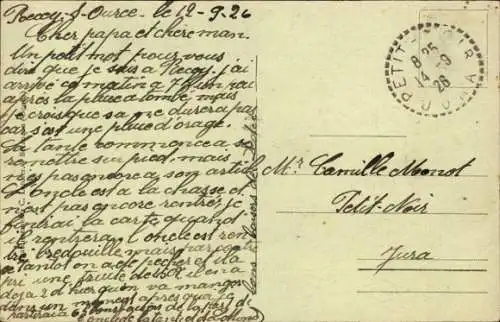 Recey-s-Ource. le 12-9-26
Cher papa et chère man.
Un petit mot pour vous
dire que je suis à Recey. j'ai
arrivé ce matin a 7 h un rai
après la pluie a tombé, mais
je crois que sa me durera pas
car s'est une pluie d'orage.
La tante commence a se
remettre sur pied, mais
n'es pas encore a son
L'oncle est a la chasse et
n'est pas encore rentré, je
finirai la carte quand
il rentrera. L'oncle est ren-
tré bredouille mais par contre
tantot on a été pecher et il a
pri une truite de il en a
deja 2 d'hier qu'on va manger
dans un moment après quoi je
partirai a 6
bons baisers de
Mr Camille Monot
Petit-Noir
Jura
PETIT-NOIR
8 25
14 -9
26
JURA